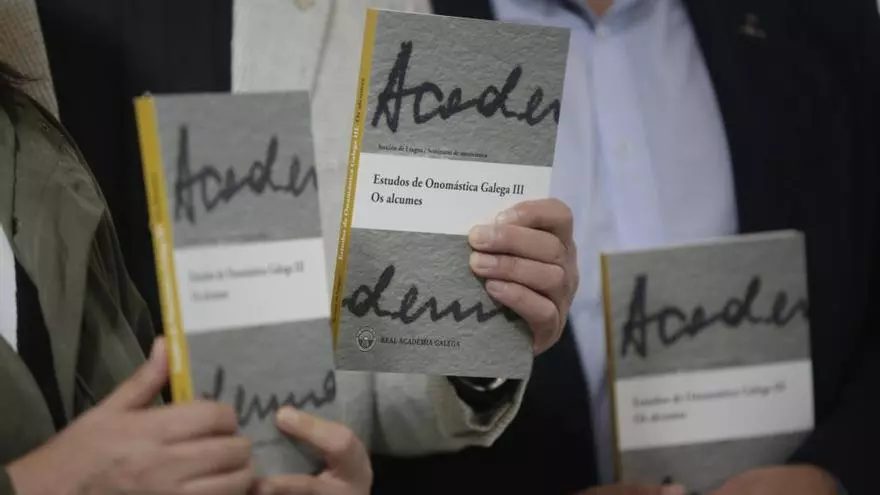 Academ
Estudos de Onomástica Galega III
Os alcumes
Academ
Sección de Lingua / Seminario de onomástica
Estudos de Onomástica Galega III
Os alcumes
demo
REAL ACADEMIA GALEGA
Estudos de Onomástica Galega III Os alcumes
Academ
Estudos de Onomástica Galega III
Os alcumes